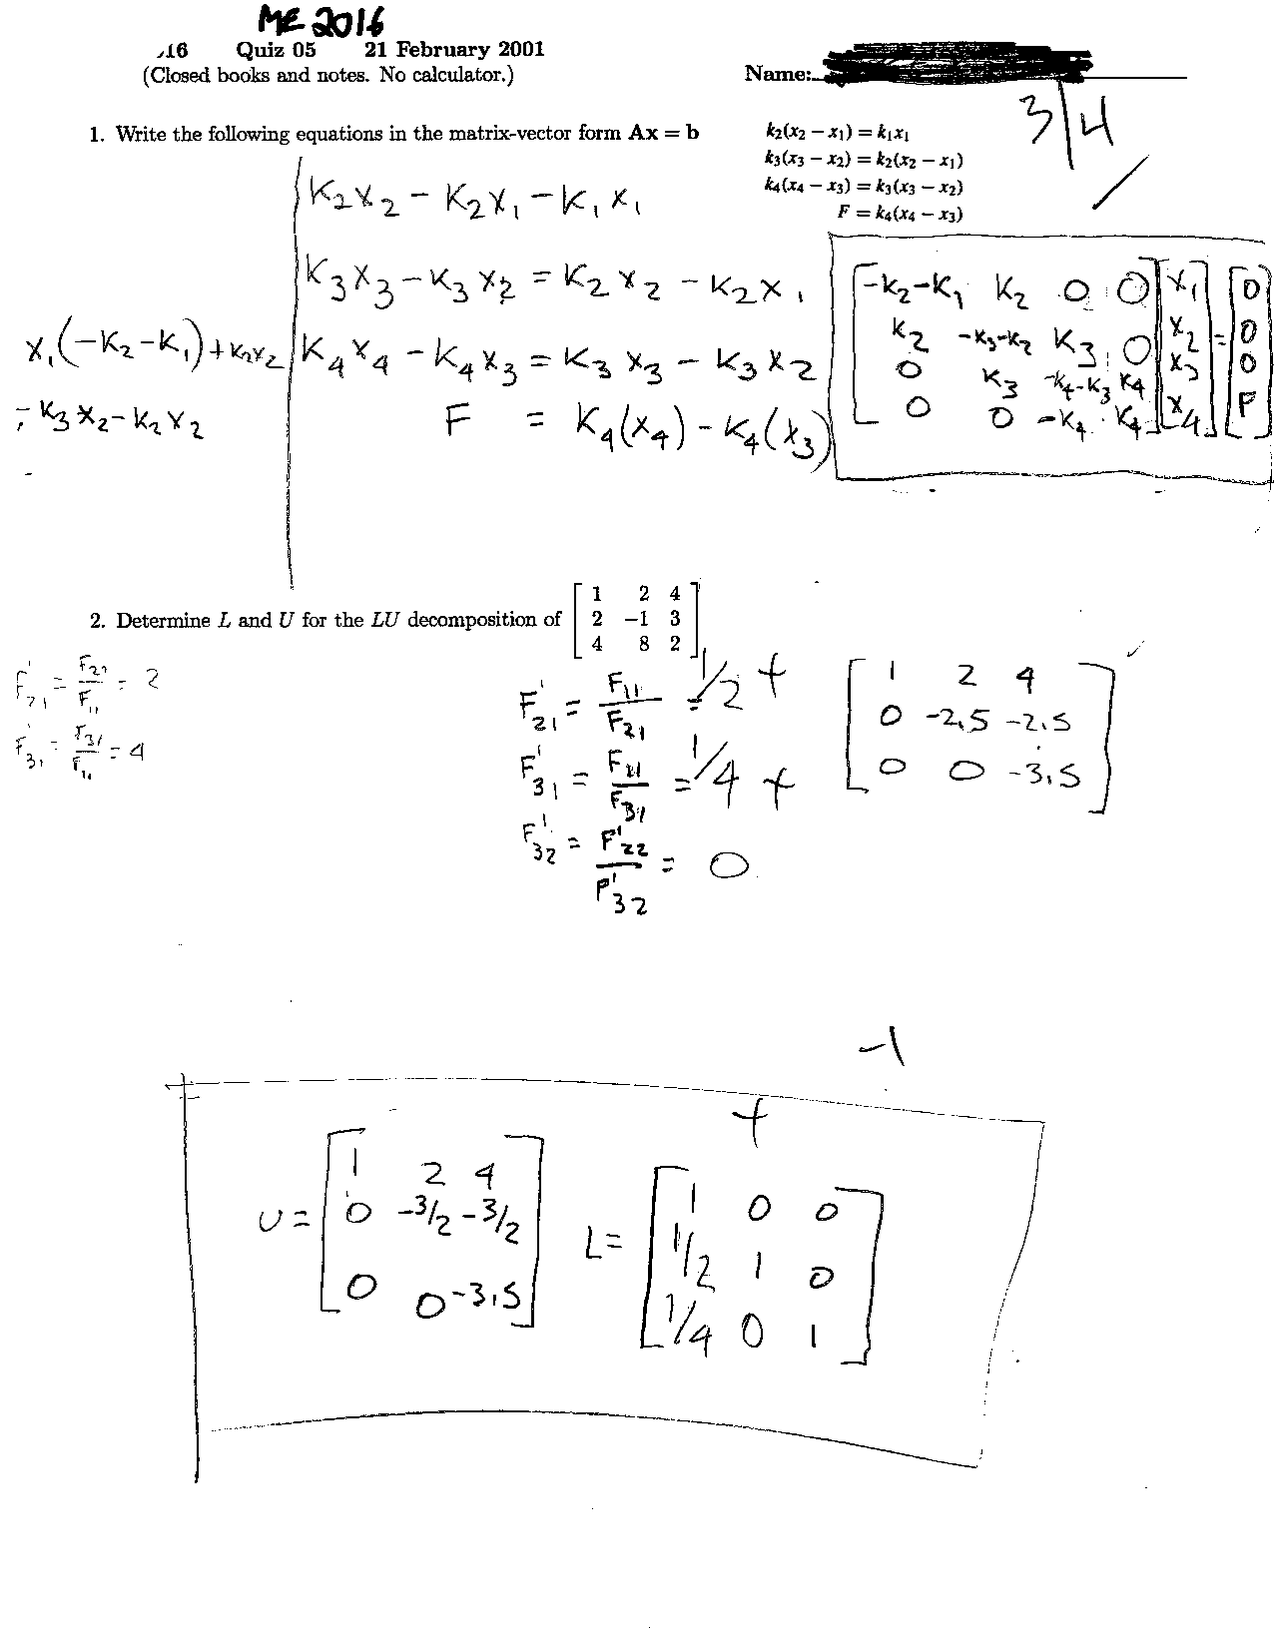 ME 2016
16 Quiz 05 21 February 2001
(Closed books and notes. No calculator.) Name:
3/4
1. Write the following equations in the matrix-vector form Ax = b
k₂(x₂ − x₁) = k₁x₁
k₃(x₃ − x₂) = k₂(x₂ − x₁)
k₄(x₄ − x₃) = k₃(x₃ − x₂)
F = k₄(x₄ − x₃)
K₂X₂ − K₂X₁ − K₁X₁
K₃X₃ − K₃X₂ = K₂X₂ − K₂X₁
K₄X₄ − K₄X₃ = K₃X₃ − K₃X₂
F = K₄(X₄) − K₄(X₃)
X₁(−K₂−K₁)+K₂X₂
= K₃X₂ − K₂X₂
[−K₂−K₁ K₂ 0 0] [X₁] [0]
[K₂ −K₃−K₂ K₃ 0] [X₂] = [0]
[0 K₃ −K₄−K₃ K₄] [X₃] [0]
[0 0 −K₄ K₄] [X₄] [F]
2. Determine L and U for the LU decomposition of
[1 2 4]
[2 −1 3]
[4 8 2]
F'₂₁ = F₂₁/F₁₁ = 2
F'₃₁ = F₃₁/F₁₁ = 4
F'₂₁ = F₁₁/F₂₁ = 1/2 +
F'₃₁ = F₁₁/F₃₁ = 1/4 +
F'₃₂ = F'₂₂/F'₃₂ = 0
[1 2 4]
[0 −2.5 −2.5]
[0 0 −3.5]
−1
+
U = [1 2 4]
[0 −3/2 −3/2]
[0 0 −3.5]
L = [1 0 0]
[1/2 1 0]
[1/4 0 1]